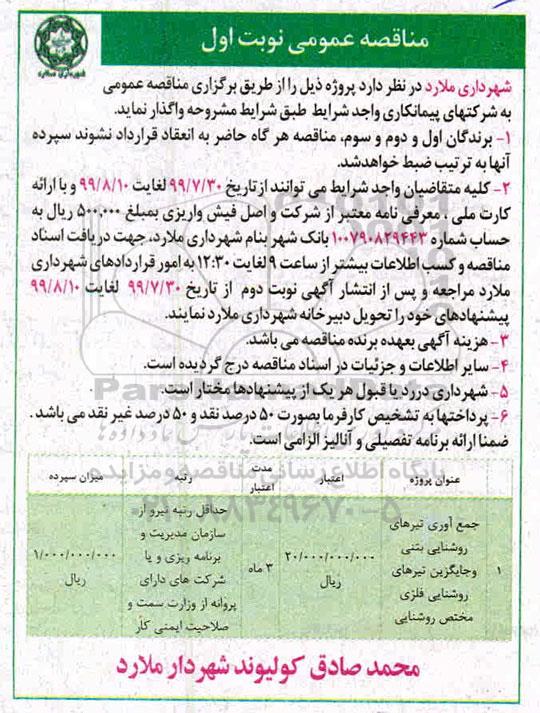 مناقصه عمومی نوبت اول
شهرداری ملارد
شهرداری ملارد در نظر دارد پروژه ذیل را از طریق برگزاری مناقصه عمومی
به شرکتهای پیمانکاری واجد شرایط طبق شرایط مشروحه واگذار نماید.
۱- برندگان اول و دوم و سوم، مناقصه هر گاه حاضر به انعقاد قرارداد نشوند سپرده
آنها به ترتیب ضبط خواهدشد.
۲- کلیه متقاضیان واجد شرایط می توانند از تاریخ ۹۹/۷/۳۰ لغایت ۹۹/۸/۱۰ و با ارائه
کارت ملی ، معرفی نامه معتبر از شرکت و اصل فیش واریزی بمبلغ ۵۰۰,۰۰۰ ریال به
حساب شماره ۱۰۰۷۹۰۸۲۹۴۴۳ بانک شهر بنام شهرداری ملارد، جهت دریافت اسناد
مناقصه و کسب اطلاعات بیشتر از ساعت ۹ لغایت ۱۲:۳۰ به امور قراردادهای شهرداری
ملارد مراجعه و پس از انتشار آگهی نوبت دوم از تاریخ ۹۹/۷/۳۰ لغایت ۹۹/۸/۱۰
پیشنهادهای خود را تحویل دبیرخانه شهرداری ملارد نمایند.
۳- هزینه آگهی بعهده برنده مناقصه می باشد.
۴- سایر اطلاعات و جزئیات در اسناد مناقصه درج گردیده است.
۵- شهرداری دررد یا قبول هر یک از پیشنهادها مختار است.
۶- پرداختها به تشخیص کارفرما بصورت ۵۰ درصد نقد و ۵۰ درصد غیر نقد می باشد .
ضمنا ارائه برنامه تفصیلی و آنالیز الزامی است.
پایگاه اطلاع رسانی مناقصه و مزایده
۰۲۱-۸۸۳۴۹۶۷۰-۵
عنوان پروژه
اعتبار
مدت
اعتبار
رتبه
میزان سپرده
۱
جمع آوری تیرهای
روشنایی بتنی
وجایگزین تیرهای
روشنایی فلزی
مختص روشنایی
۲۰/۰۰۰/۰۰۰/۰۰۰
ریال
۳ ماه
حداقل رتبه نیرو از
سازمان مدیریت و
برنامه ریزی و یا
شرکت های دارای
پروانه از وزارت سمت و
صلاحیت ایمنی کار
۱/۰۰۰/۰۰۰/۰۰۰
ریال
محمد صادق کولیوند شهردار ملارد